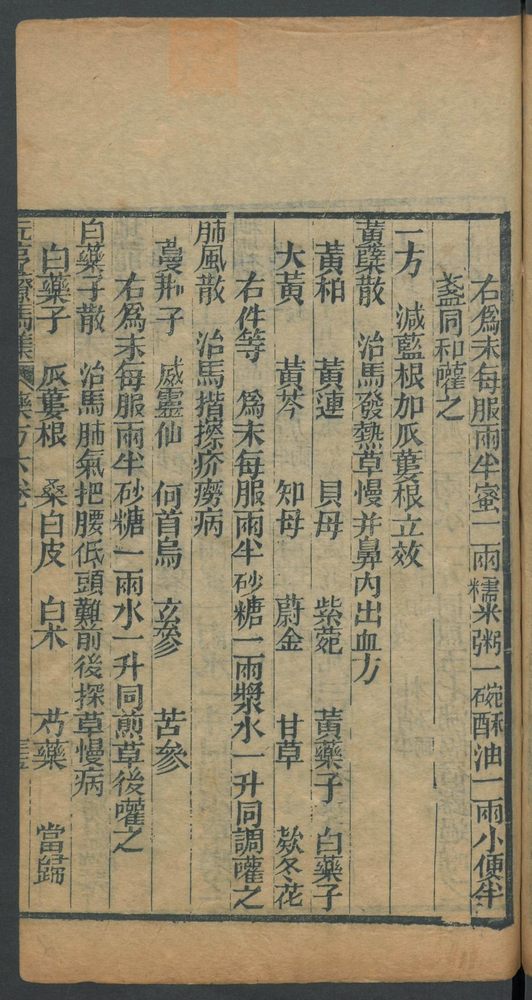 右為末每服兩半蜜二兩糯米粥一碗酥油一兩小便半
盞同和囉之
一方　減藍根加瓜蔞根立效
黃蘗散　治馬發熱草慢并鼻內出血方
黃柏　黃連　貝母　紫菀　黃藥子　白藥子
大黃　黃芩　知母　蔚金　甘草　欵冬花
右件等　為末每服兩半砂糖二兩漿水一升同調嚾之
肺風散　治馬揩擦疥癆病
蔓荆子　威靈仙　何首烏　玄參　苦參
右為末每服兩半砂糖一兩水一升同煎草後嚾之
白藥子散　治馬肺氣把腰低頭難前後探草慢病
白藥子　瓜蔞根　桑白皮　白朮　芍藥　當歸
療馬集　藥方六卷